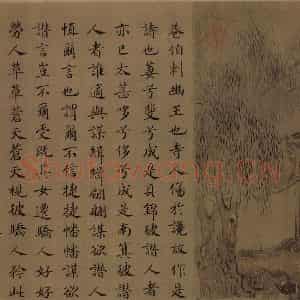 巷伯刺幽王也寺人傷於讒故作是
詩也萋兮斐兮成是貝錦彼譖人者
亦已太甚哆兮侈兮成是南箕彼譖
人者誰適與謀緝緝翩翩謀欲譖人
慎爾言也謂爾不信捷捷幡幡謀欲
譖言豈不爾受既其女遷驕人好好
勞人草草蒼天蒼天視彼驕人矜此
Shufawang.CN